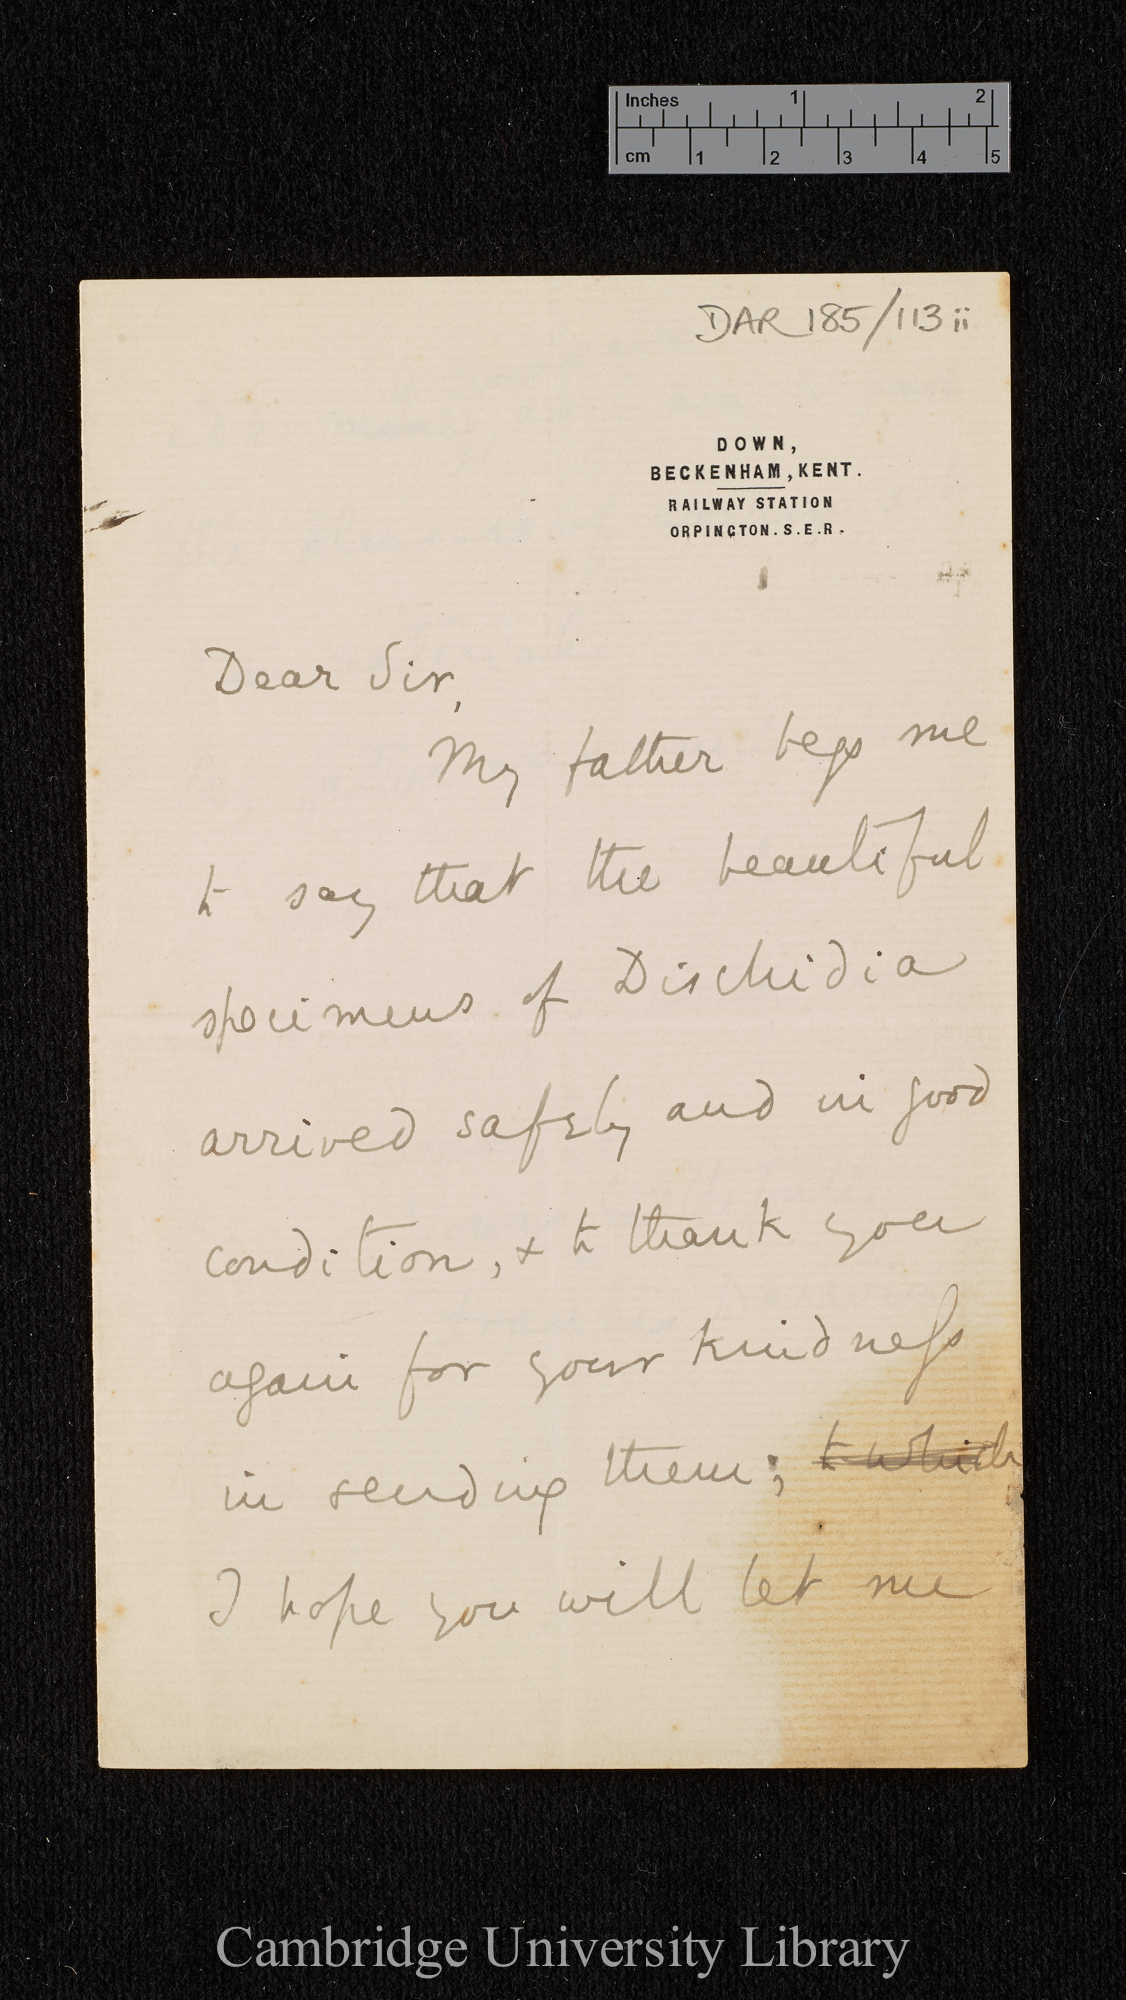 Inches 1 2
cm 1 2 3 4 5
DAR 185/113 ii
DOWN,
BECKENHAM, KENT.
RAILWAY STATION
ORPINGTON. S.E.R.
Dear Sir,
My father begs me
to say that the beautiful
specimens of Dischidia
arrived safely and in good
condition, & to thank you
again for your kindness
in sending them; to which
I hope you will let me
Cambridge University Library